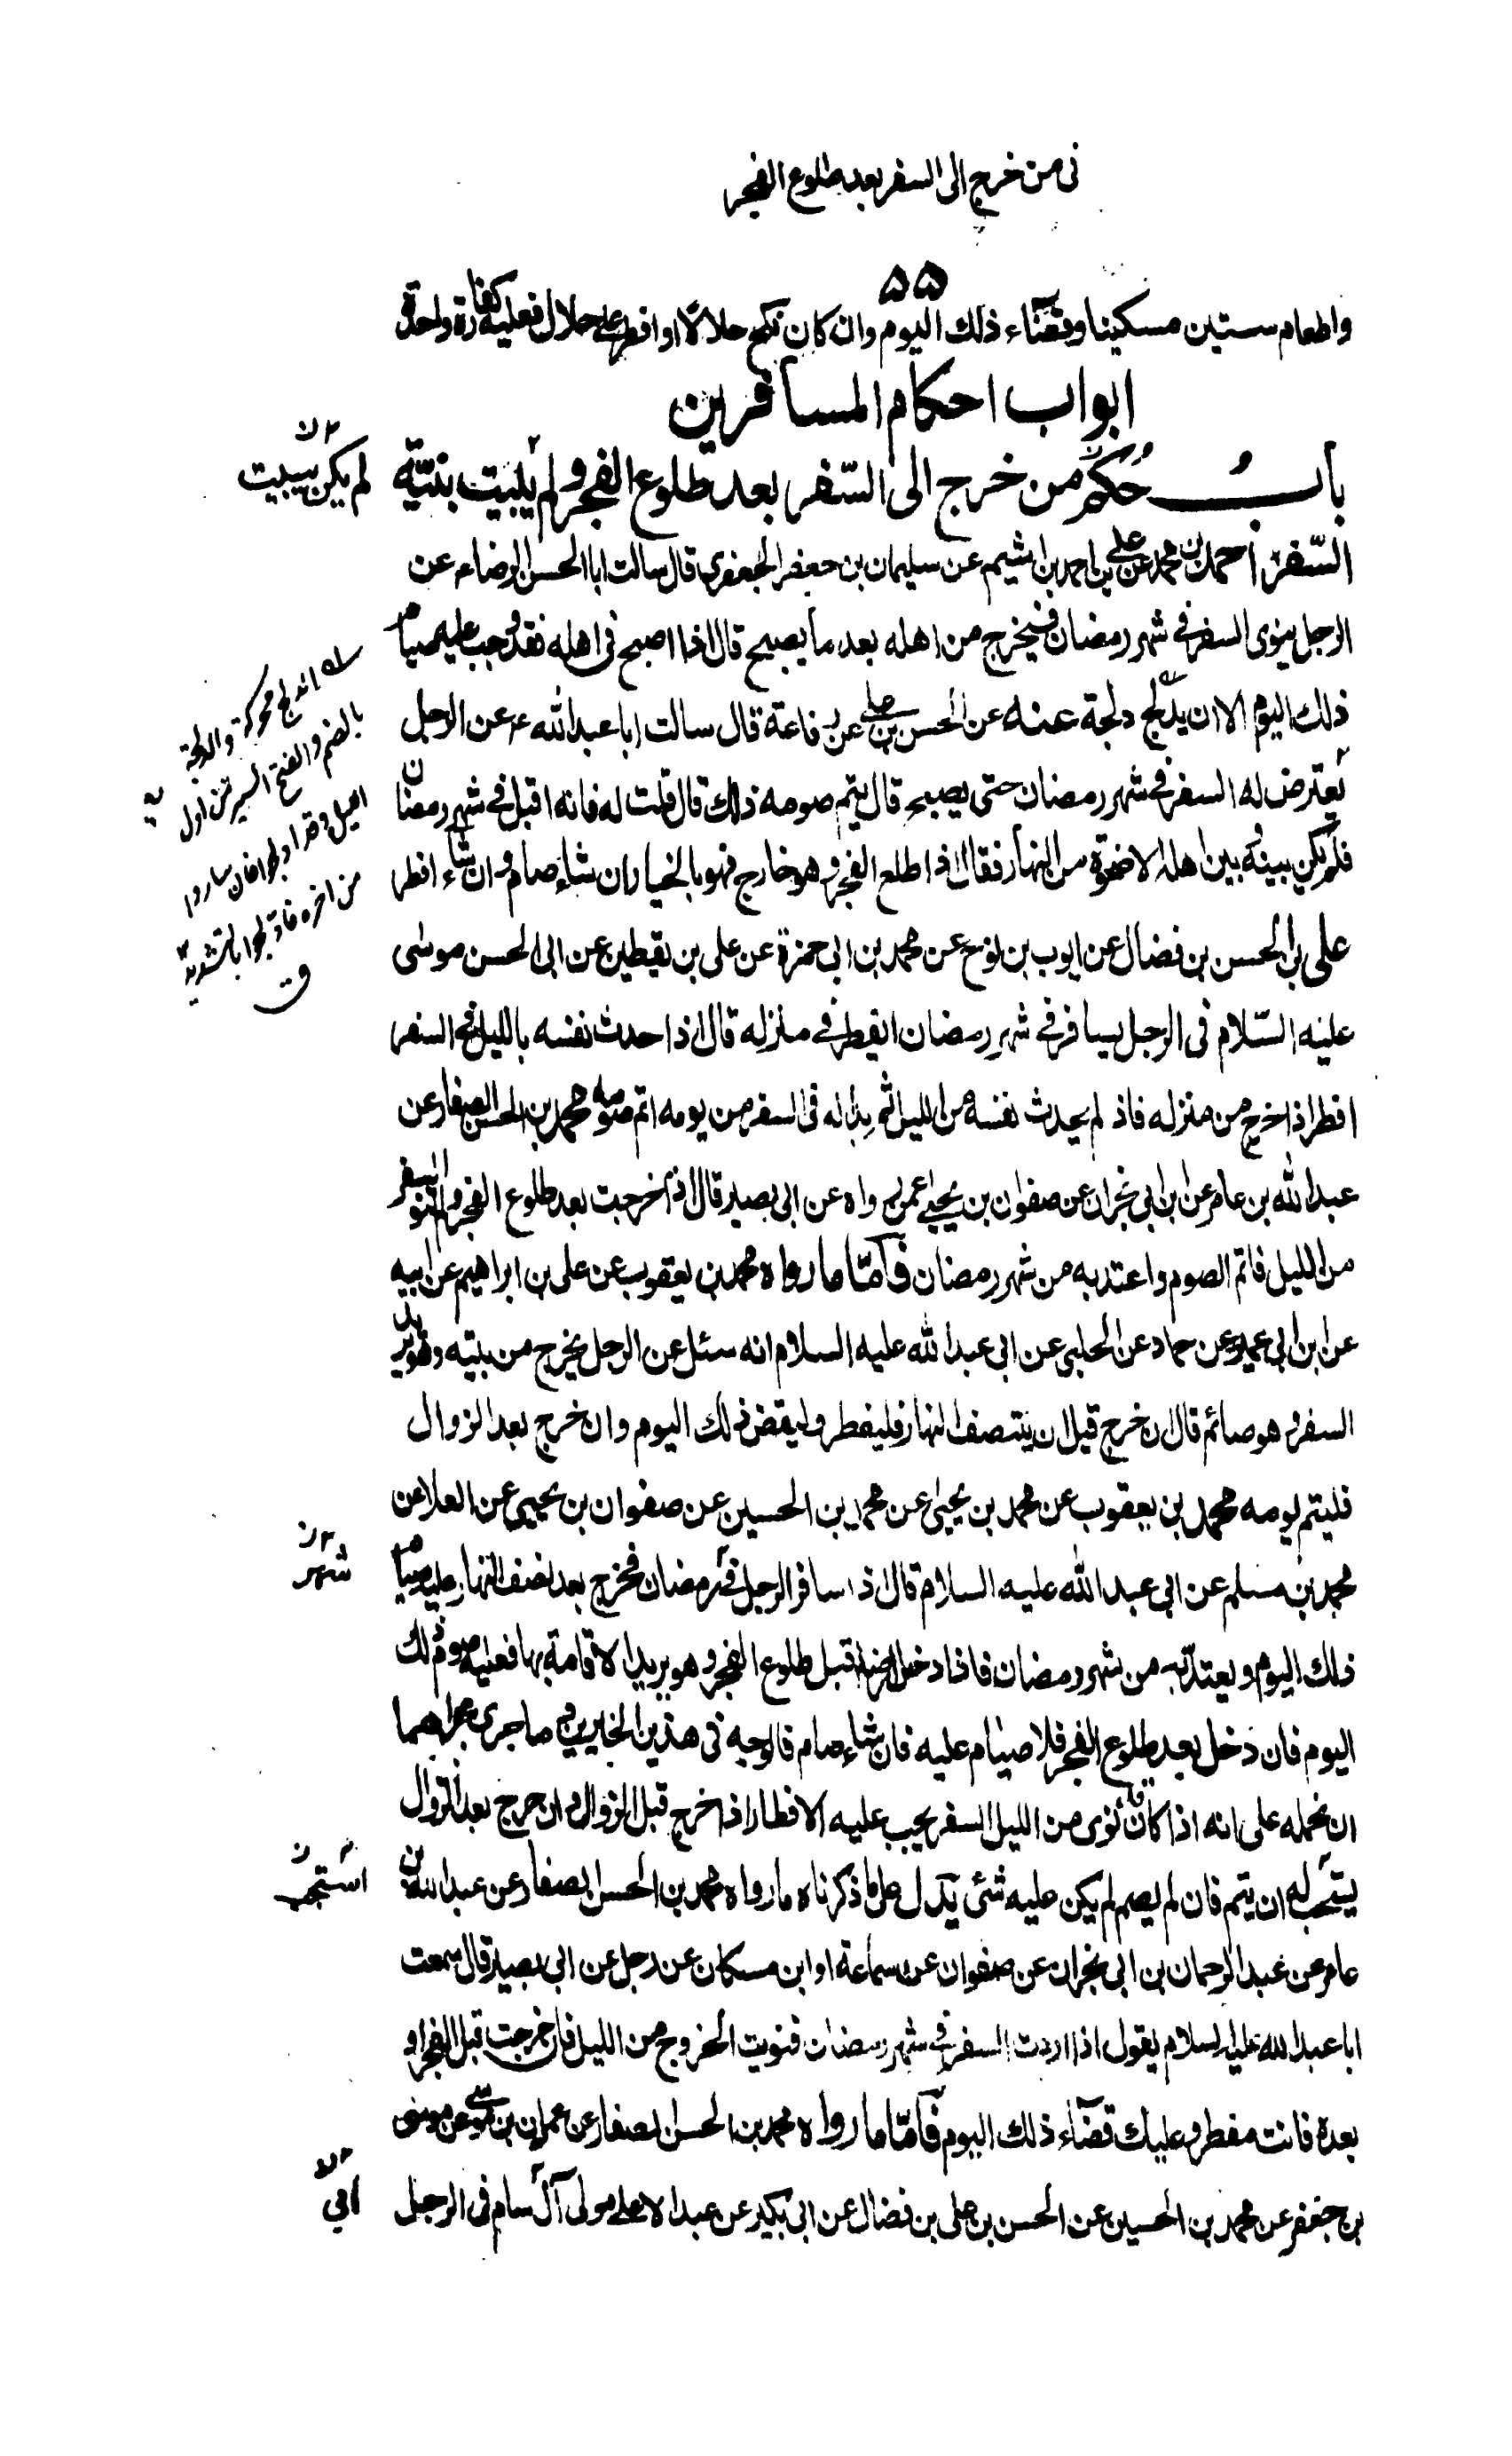 فى من خرج الى السفر بعد طلوع الفجر
۵۵
واطعام ستين مسكينا وقضاء ذلك اليوم وان كان نكح حلالا او افطر على حلال فعليه كفارة واحدة
ابواب احكام المسافرين
باب حكم من خرج الى السّفر بعد طلوع الفجر ولم يبيت بنيّة
لم يكن يبيت
السّفر احمد بن محمد عن على بن احمد بن اشيم عن سليمان بن جعفر الجعفرى قال سالت ابا الحسن الرضاء عن
الرجل ينوى السفر فى شهر رمضان فيخرج من اهله بعد ما يصبح قال اذا اصبح فى اهله فقد وجب عليه صيام
ذلك اليوم الا ان يدلج دلجة عنه عن الحسن بن على عن رفاعة قال سالت ابا عبد الله ع عن الرجل
يعترض له السفر فى شهر رمضان حتى يصبح قال يتم صومه ذلك قال قلت له فانه اقبل فى شهر رمضان
فلم يكن بينه وبين اهله الا ضحوة من النهار فقال اذا طلع الفجر وهو خارج فهو بالخيار ان شاء صام وان شاء افطر
على بن الحسن بن فضال عن ايوب بن نوح عن محمد بن ابى حمزة عن على بن يقطين عن ابى الحسن موسى
عليه السّلام فى الرجل يسافر فى شهر رمضان ايفطر فى منزله قال اذا حدث نفسه بالليل فى السفر
افطر اذا خرج من منزله فاذ لم يحدث نفسه من الليل ثم بدا له فى السفر من يومه اتم صومه محمد بن الحسن الصفار عن
عبد الله بن عامر عن ابن ابى نجران عن صفوان بن يحيى عمن رواه عن ابى بصير قال اذا خرجت بعد طلوع الفجر ولم تنو السفر
من الليل فاتم الصوم واعتد به من شهر رمضان فأمّا ما رواه محمد بن يعقوب عن على بن ابراهيم عن ابيه
عن ابن ابى عمير عن حماد عن الحلبى عن ابى عبد الله عليه السلام انه سئل عن الرجل يخرج من بيته وهو يريد
السفر وهو صائم قال ان خرج قبل ان ينتصف النهار فليفطر وليقض ذلك اليوم وان خرج بعد الزوال
فليتم يومه محمد بن يعقوب عن محمد بن يحيى عن محمد بن الحسين عن صفوان بن يحيى عن العلا عن
محمد بن مسلم عن ابى عبد الله عليه السلام قال اذا سافر الرجل فى رمضان فخرج بعد نصف النهار عليه صيام
شهر
ذلك اليوم ويعتد به من شهر رمضان فاذا دخل ارضا قبل طلوع الفجر وهو يريد الاقامة بها فعليه صوم ذلك
اليوم فان دخل بعد طلوع الفجر فلا صيام عليه فان شاء صام فالوجه فى هذين الخبرين وما جرى مجراهما
ان نحمله على انه اذا كان نوى من الليل السفر يجب عليه الافطار اذا خرج قبل الزوال وان خرج بعد الزوال
يستحب له ان يتم فان لم يصم لم يكن عليه شئ يدل على ما ذكرناه ما رواه محمد بن الحسن الصفار عن عبد الله بن
استحب
عامر عن عبد الرحمان بن ابى نجران عن صفوان عن سماعة او ابن مسكان عن رجل عن ابى بصير قال سمعت
ابا عبد الله عليه السلام يقول اذا اردت السفر فى شهر رمضان فنويت الخروج من الليل فان خرجت قبل الفجر او
بعده فانت مفطر وعليك قضاء ذلك اليوم فأمّا ما رواه محمد بن الحسن الصفار عن عمران بن موسى عن موسى
بن جعفر عن محمد بن الحسين عن الحسن بن على بن فضال عن ابى بكير عن عبد الاعلى مولى آل سام فى الرجل
بالضم والفتح السير من اول
من اخره فادّلجوا بالتشديد
ق